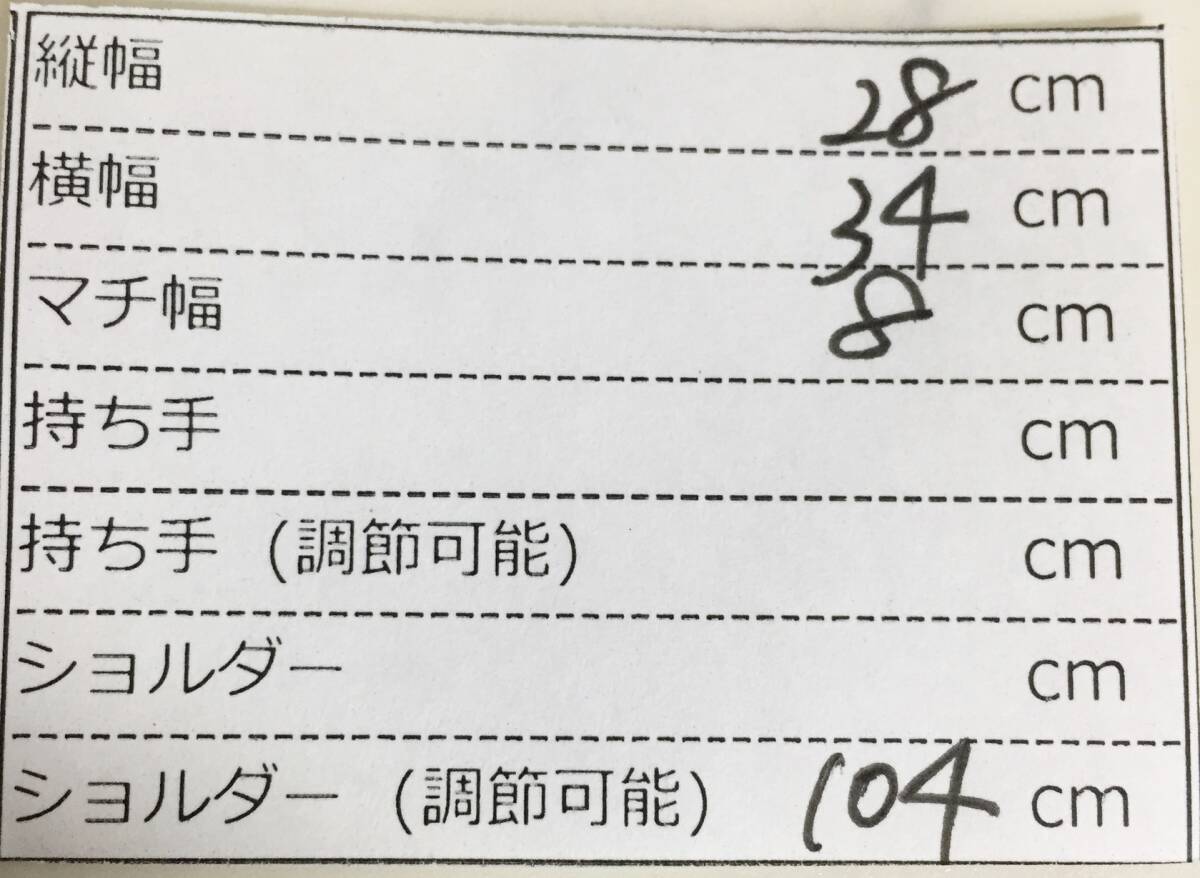 縦幅 28 cm
横幅 34 cm
マチ幅 8 cm
持ち手 cm
持ち手 (調節可能) cm
ショルダー cm
ショルダー (調節可能) 104 cm